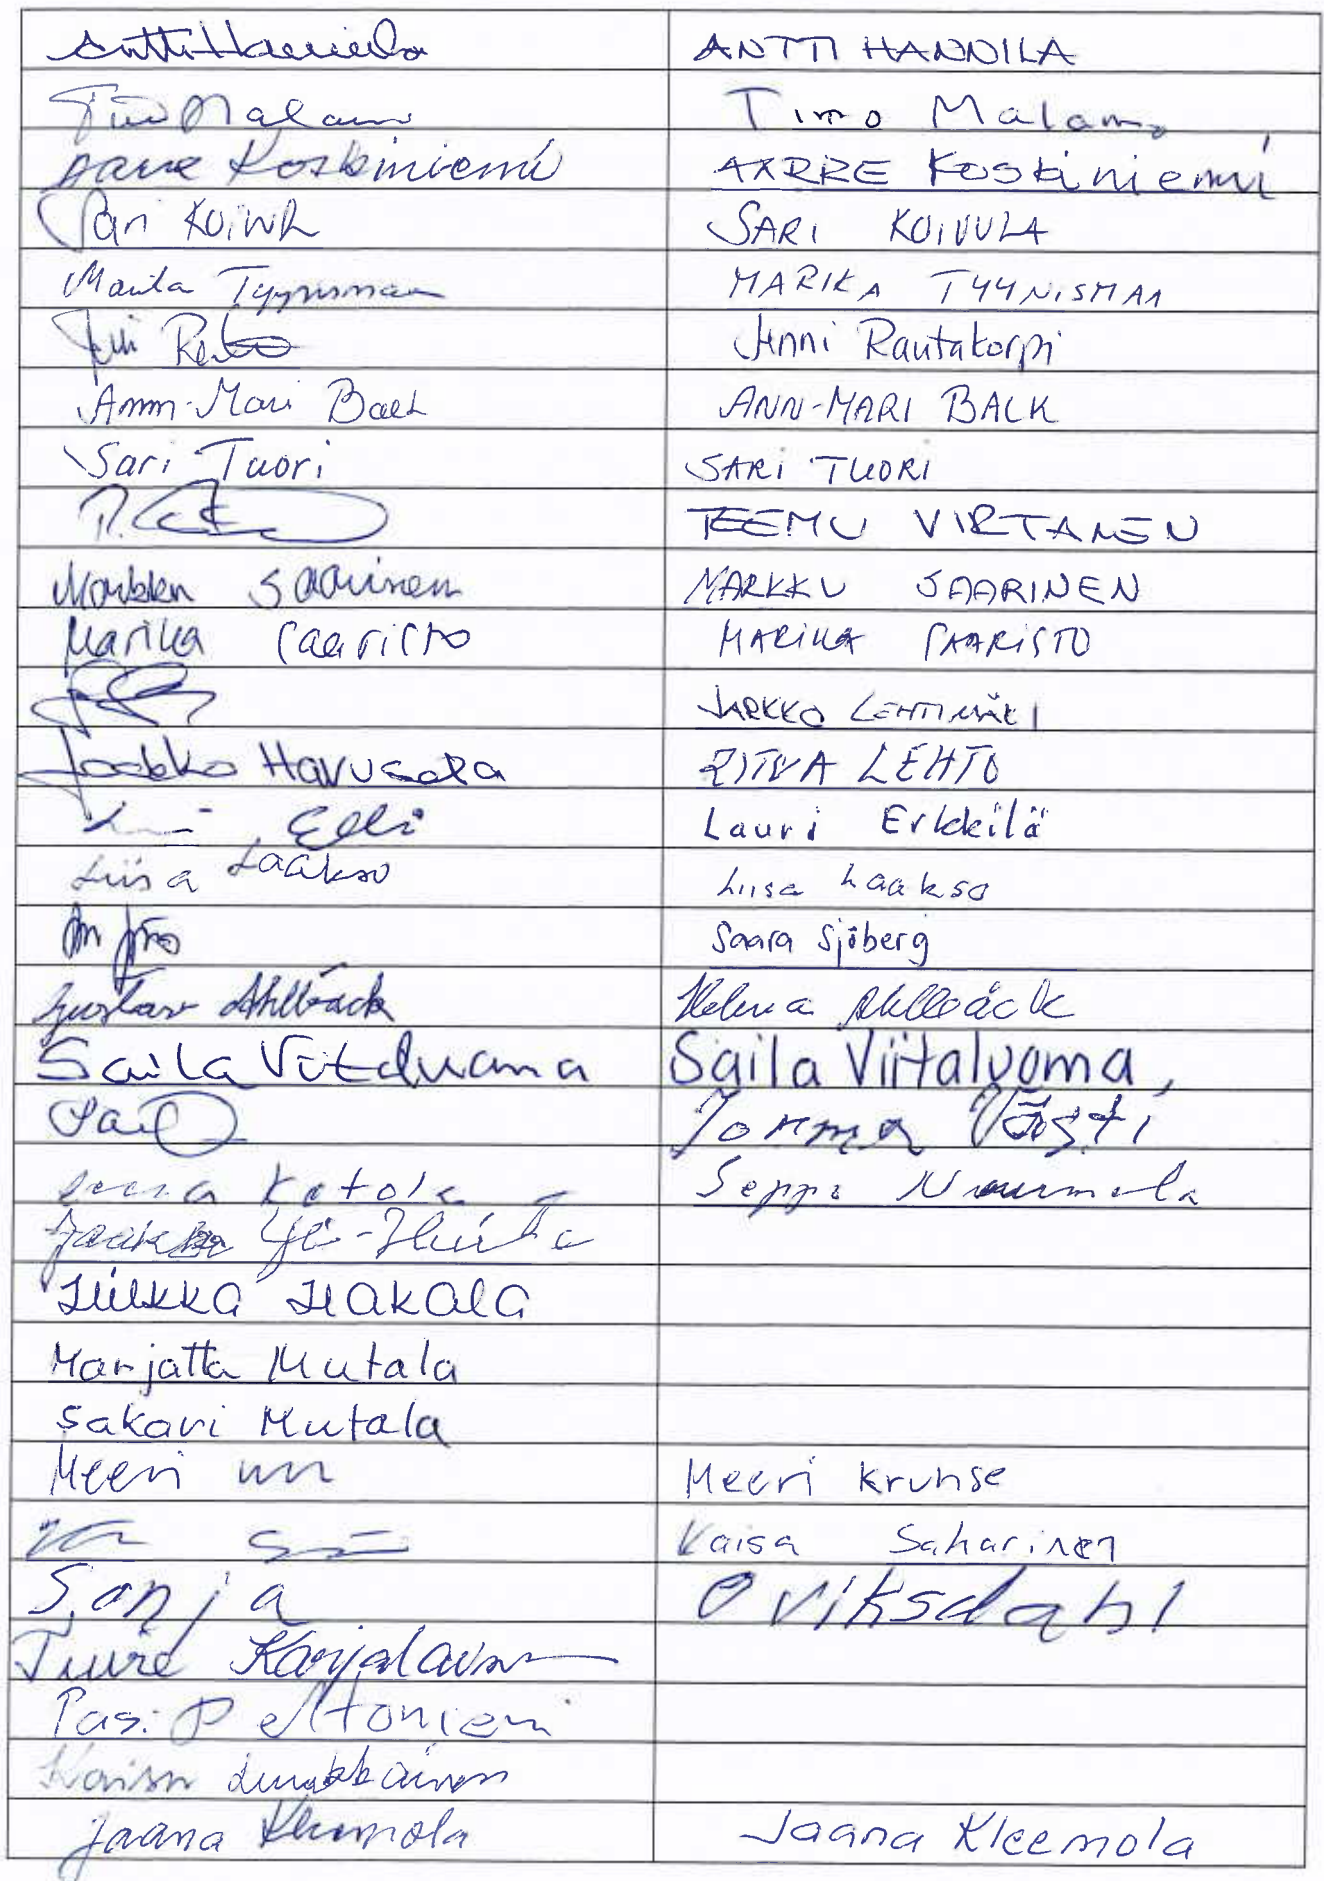 Antti Hannila ANTTI HANNILA
Timo Malamo
Aarre Koskiniemi AARRE Koskiniemi
Sari Koivula SARI KOIVULA
Marika Tyynismaa MARIKA TYYNISMAA
Jenni Rautakorpi
Ann-Mari Back ANN-MARI BACK
Sari Tuori SARI TUORI
TEEMU VIRTANEN
Markku Saarinen MARKKU SAARINEN
Marika Saaristo MARIKA SAARISTO
JARKKO LEHTIMÄKI
Jaakko Havusela RITVA LEHTO
Lauri Erkkilä
Liisa Laakso Liisa Laakso
Saara Sjöberg
Gustav Ahlbäck Helena Ahlbäck
Saila Viitaluoma Saila Viitaluoma
Jorma Västi
Ketola Seppo Nuurmela
Jaakko Yli-Huita
Hilkka Hakala
Marjatta Mutala
Sakari Mutala
Meeri Meeri Kruhse
Kaisa Saharinen
Sonja Oviksdahl
Tuire Karjalainen
Pasi Peltoniemi
Kaisu Luukkainen
Jaana Kleemola Jaana Kleemola